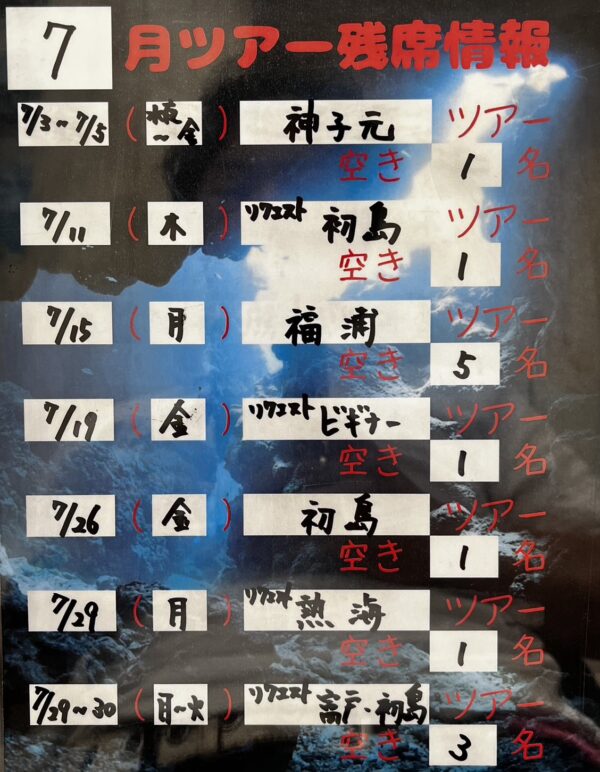 7月ツアー残席情報
7/3～7/5 (水～金) 神子元 ツアー
空き 1 名
7/11 (木) リクエスト 初島 ツアー
空き 1 名
7/15 (月) 福浦 ツアー
空き 5 名
7/19 (金) リクエスト ビギナー ツアー
空き 1 名
7/26 (金) 初島 ツアー
空き 1 名
7/29 (月) リクエスト 熱海 ツアー
空き 1 名
7/29～30 (月～火) リクエスト 富戸・初島 ツアー
空き 3 名